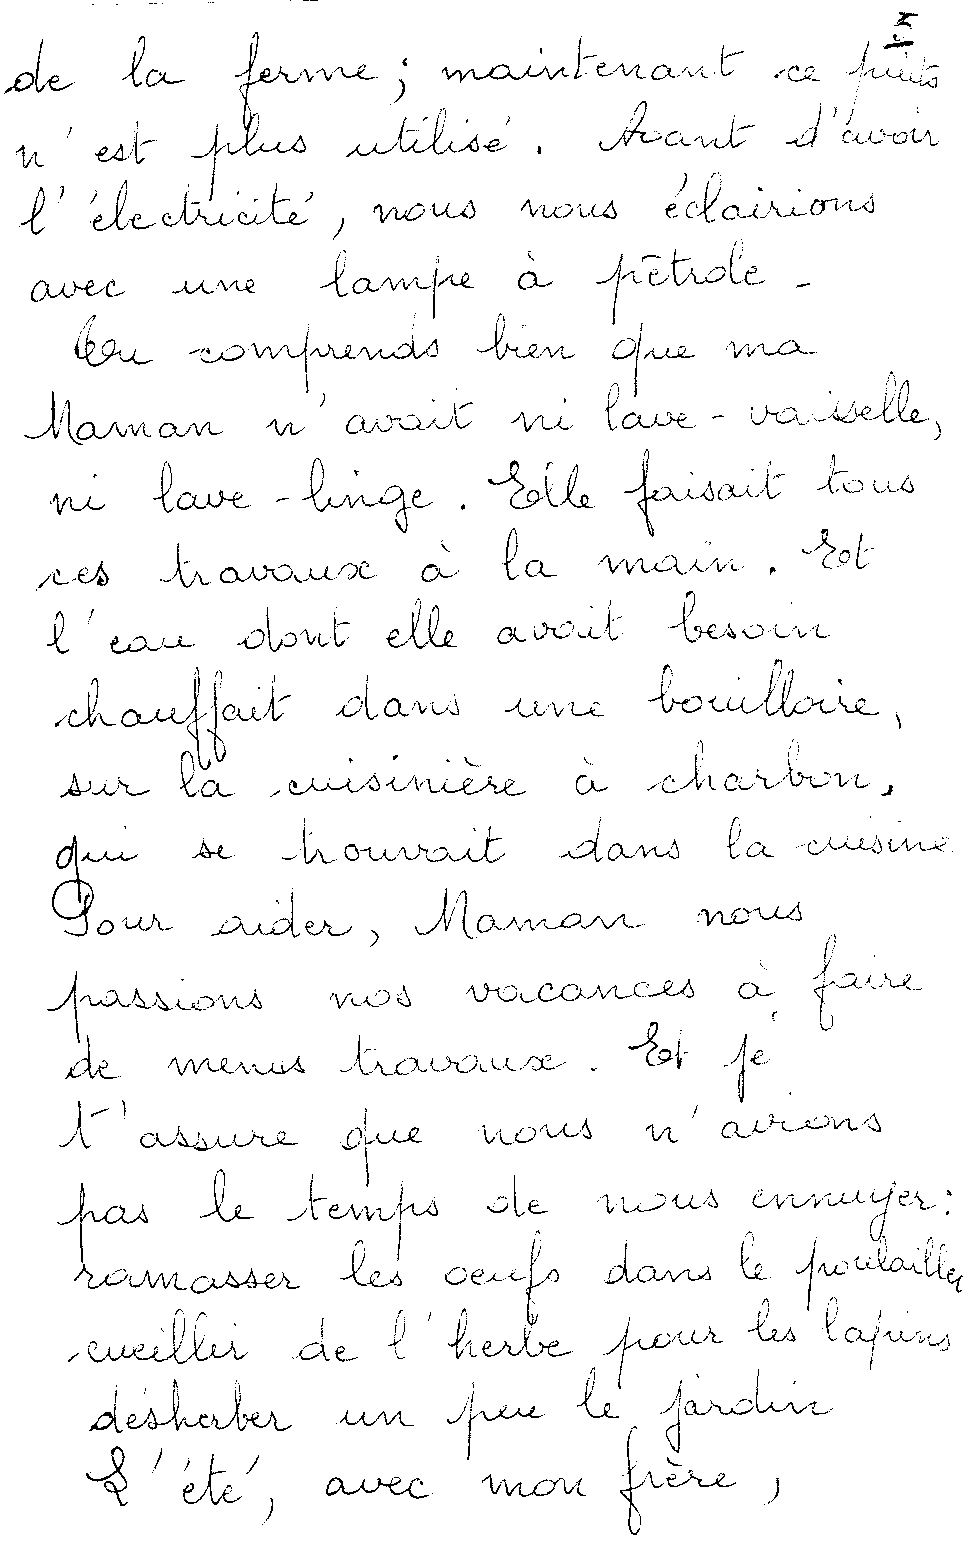 de la ferme ; maintenant ce puits
n'est plus utilisé. Avant d'avoir
l'électricité, nous nous éclairions
avec une lampe à pétrole.
Tu comprends bien que ma
Maman n'avait ni lave-vaisselle,
ni lave-linge. Elle faisait tous
ces travaux à la main. Et
l'eau dont elle avait besoin
chauffait dans une bouilloire,
sur la cuisinière à charbon,
qui se trouvait dans la cuisine
Pour aider, Maman nous
passions nos vacances à faire
de menus travaux. Et je
t'assure que nous n'avions
pas le temps de nous ennuyer :
ramasser les oeufs dans le poulailler
cueillir de l'herbe pour les lapins
désherber un peu le jardin
L'été, avec mon frère,